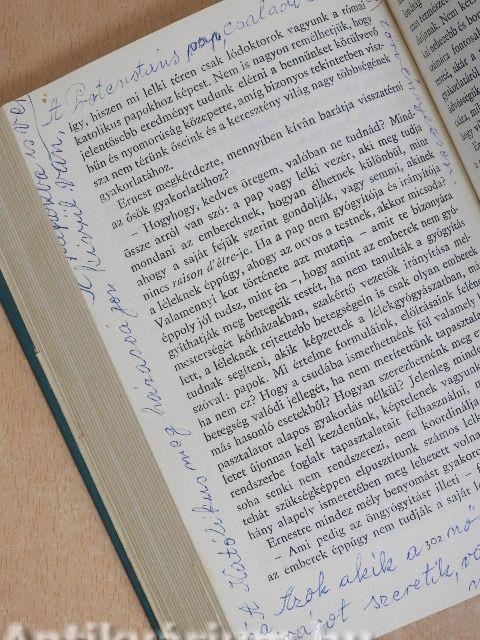 A Protestáns pap, család
így, hiszen mi lelki téren csak lódoktorok vagyunk a római
katolikus papokhoz képest. Nem is nagyon remélhetjük, hogy
jelentősebb eredményt tudunk elérni a bennünket körülvevő
bűn és nyomorúság közepette, amíg bizonyos tekintetben visz-
sza nem térünk őseink és a keresztény világ nagy többségének
gyakorlatához.
Ernest megkérdezte, mennyiben kíván barátja visszatérni
az ősök gyakorlatához?
– Hogyhogy, kedves öregem, valóban ne tudnád? Mind-
össze arról van szó: a pap vagy lelki vezér, aki meg tudja
mondani az embereknek, hogyan élhetnek különbül, mint
ahogy a saját fejük szerint gondolják, vagy semmi, akinek
nincs raison d'être-je. Ha a pap nem gyógyítója és irányítója
a léleknek éppúgy, ahogy az orvos a testnek, akkor micsoda?
Valamennyi kor története azt mutatja – amit te bizonyára
éppoly jól tudsz, mint én –, hogy amint az emberek nem gyó-
gyíthatják meg betegeik testét, ha nem tanulták a gyógyítás
mesterségét kórházakban, szakértő vezetők irányítása mel-
lett, a léleknek rejtettebb betegségein is csak olyan emberek
tudnak segíteni, akik képzettek a lélekgyógyászatban, más
szóval: papok. Mi értelme formuláink, előírásaink felének,
ha nem ez? Hogy a csudába ismerhetnénk föl valamely
betegség valódi jellegét, ha nem merítettünk tapasztalatot
más hasonló esetekből? Hogyan szerezhetnénk meg
pasztalatot alapos gyakorlás nélkül? Jelenleg mind
letet újonnan kell kezdenünk, képtelenek vagyunk
rendszerbe foglalt tapasztalatait felhasználni,
soha senki nem rendszerezi, nem koordinálja
tehát szükségképpen elpusztítunk számos lel
hány alapelv ismeretében meg lehetett volna
Ernestre mindez mély benyomást gyakor
– Ami pedig az öngyógyítást illeti –
az emberek éppúgy nem tudják a saját
302
Azok akik a nő
szeretik,
A Katolikus meg házasságon kívül
Antikvarium.hu